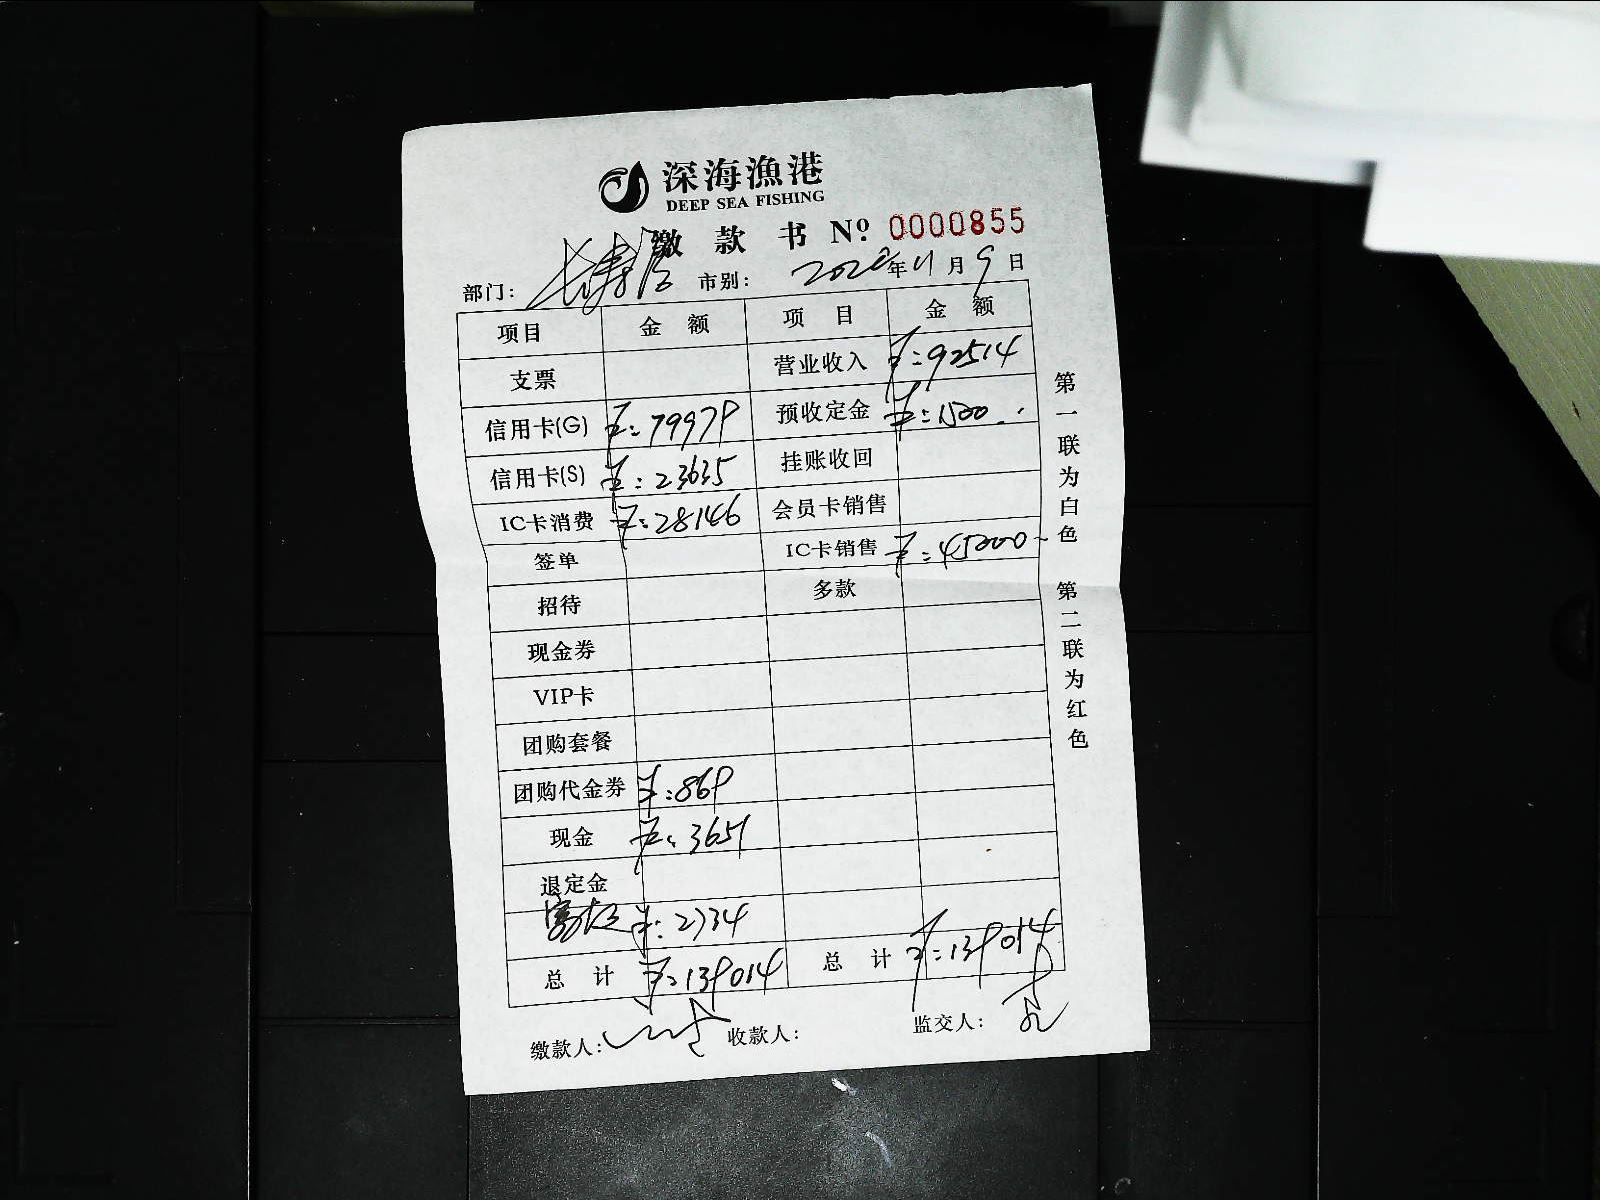 深海漁港
DEEP SEA FISHING
缴款书 Nº 0000855
部门: 长寿路 市别: 2020年11月9日
项目 金额 项目 金额
支票 营业收入 ¥:92514
信用卡(G) ¥:79979 预收定金 ¥:1500.
信用卡(S) ¥:23635 挂账收回
IC卡消费 ¥:28146 会员卡销售
签单 IC卡销售 ¥:45000-
招待 多款
现金券
VIP卡
团购套餐
团购代金券 ¥:869
现金 ¥:3651
退定金
¥:2734
总计 ¥:139014 总计 ¥:139014
缴款人: 收款人: 监交人:
第一联为白色 第二联为红色